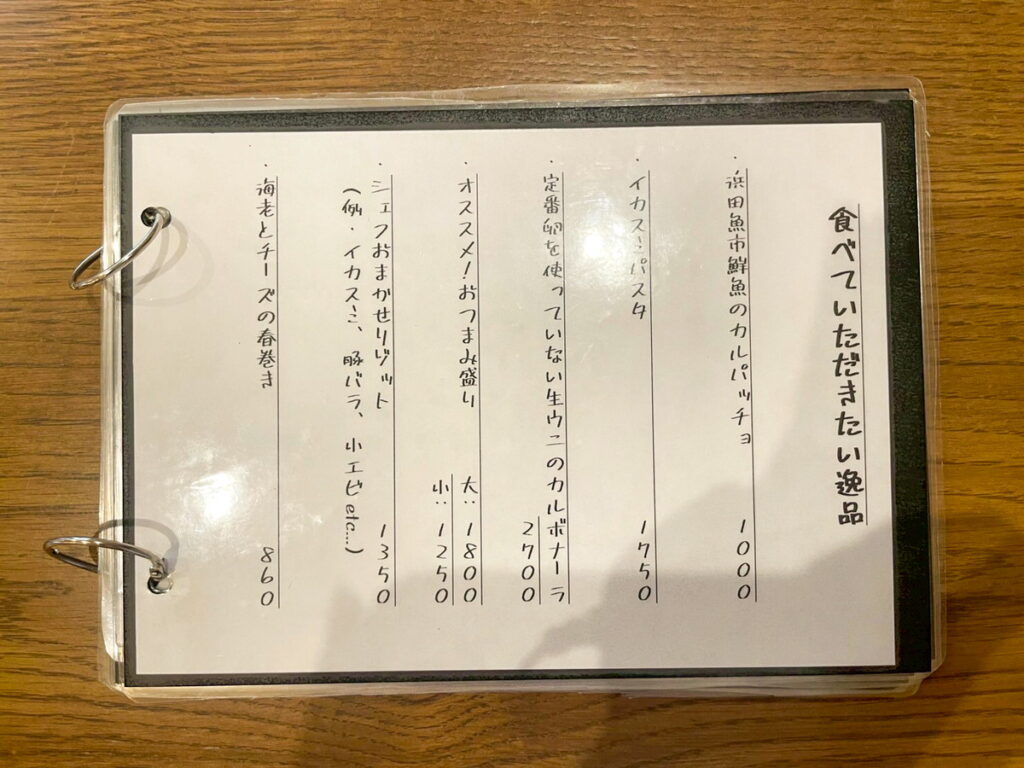 食べていただきたい逸品
・浜田魚市鮮魚のカルパッチョ 1000
・イカスミパスタ 1750
・定番卵を使っていない生ウニのカルボナーラ
2700
・オススメ!おつまみ盛り 大:1800
小:1250
・シェフおまかせリゾット 1350
(例・イカスミ、豚バラ、小エビetc...)
・海老とチーズの春巻き 860